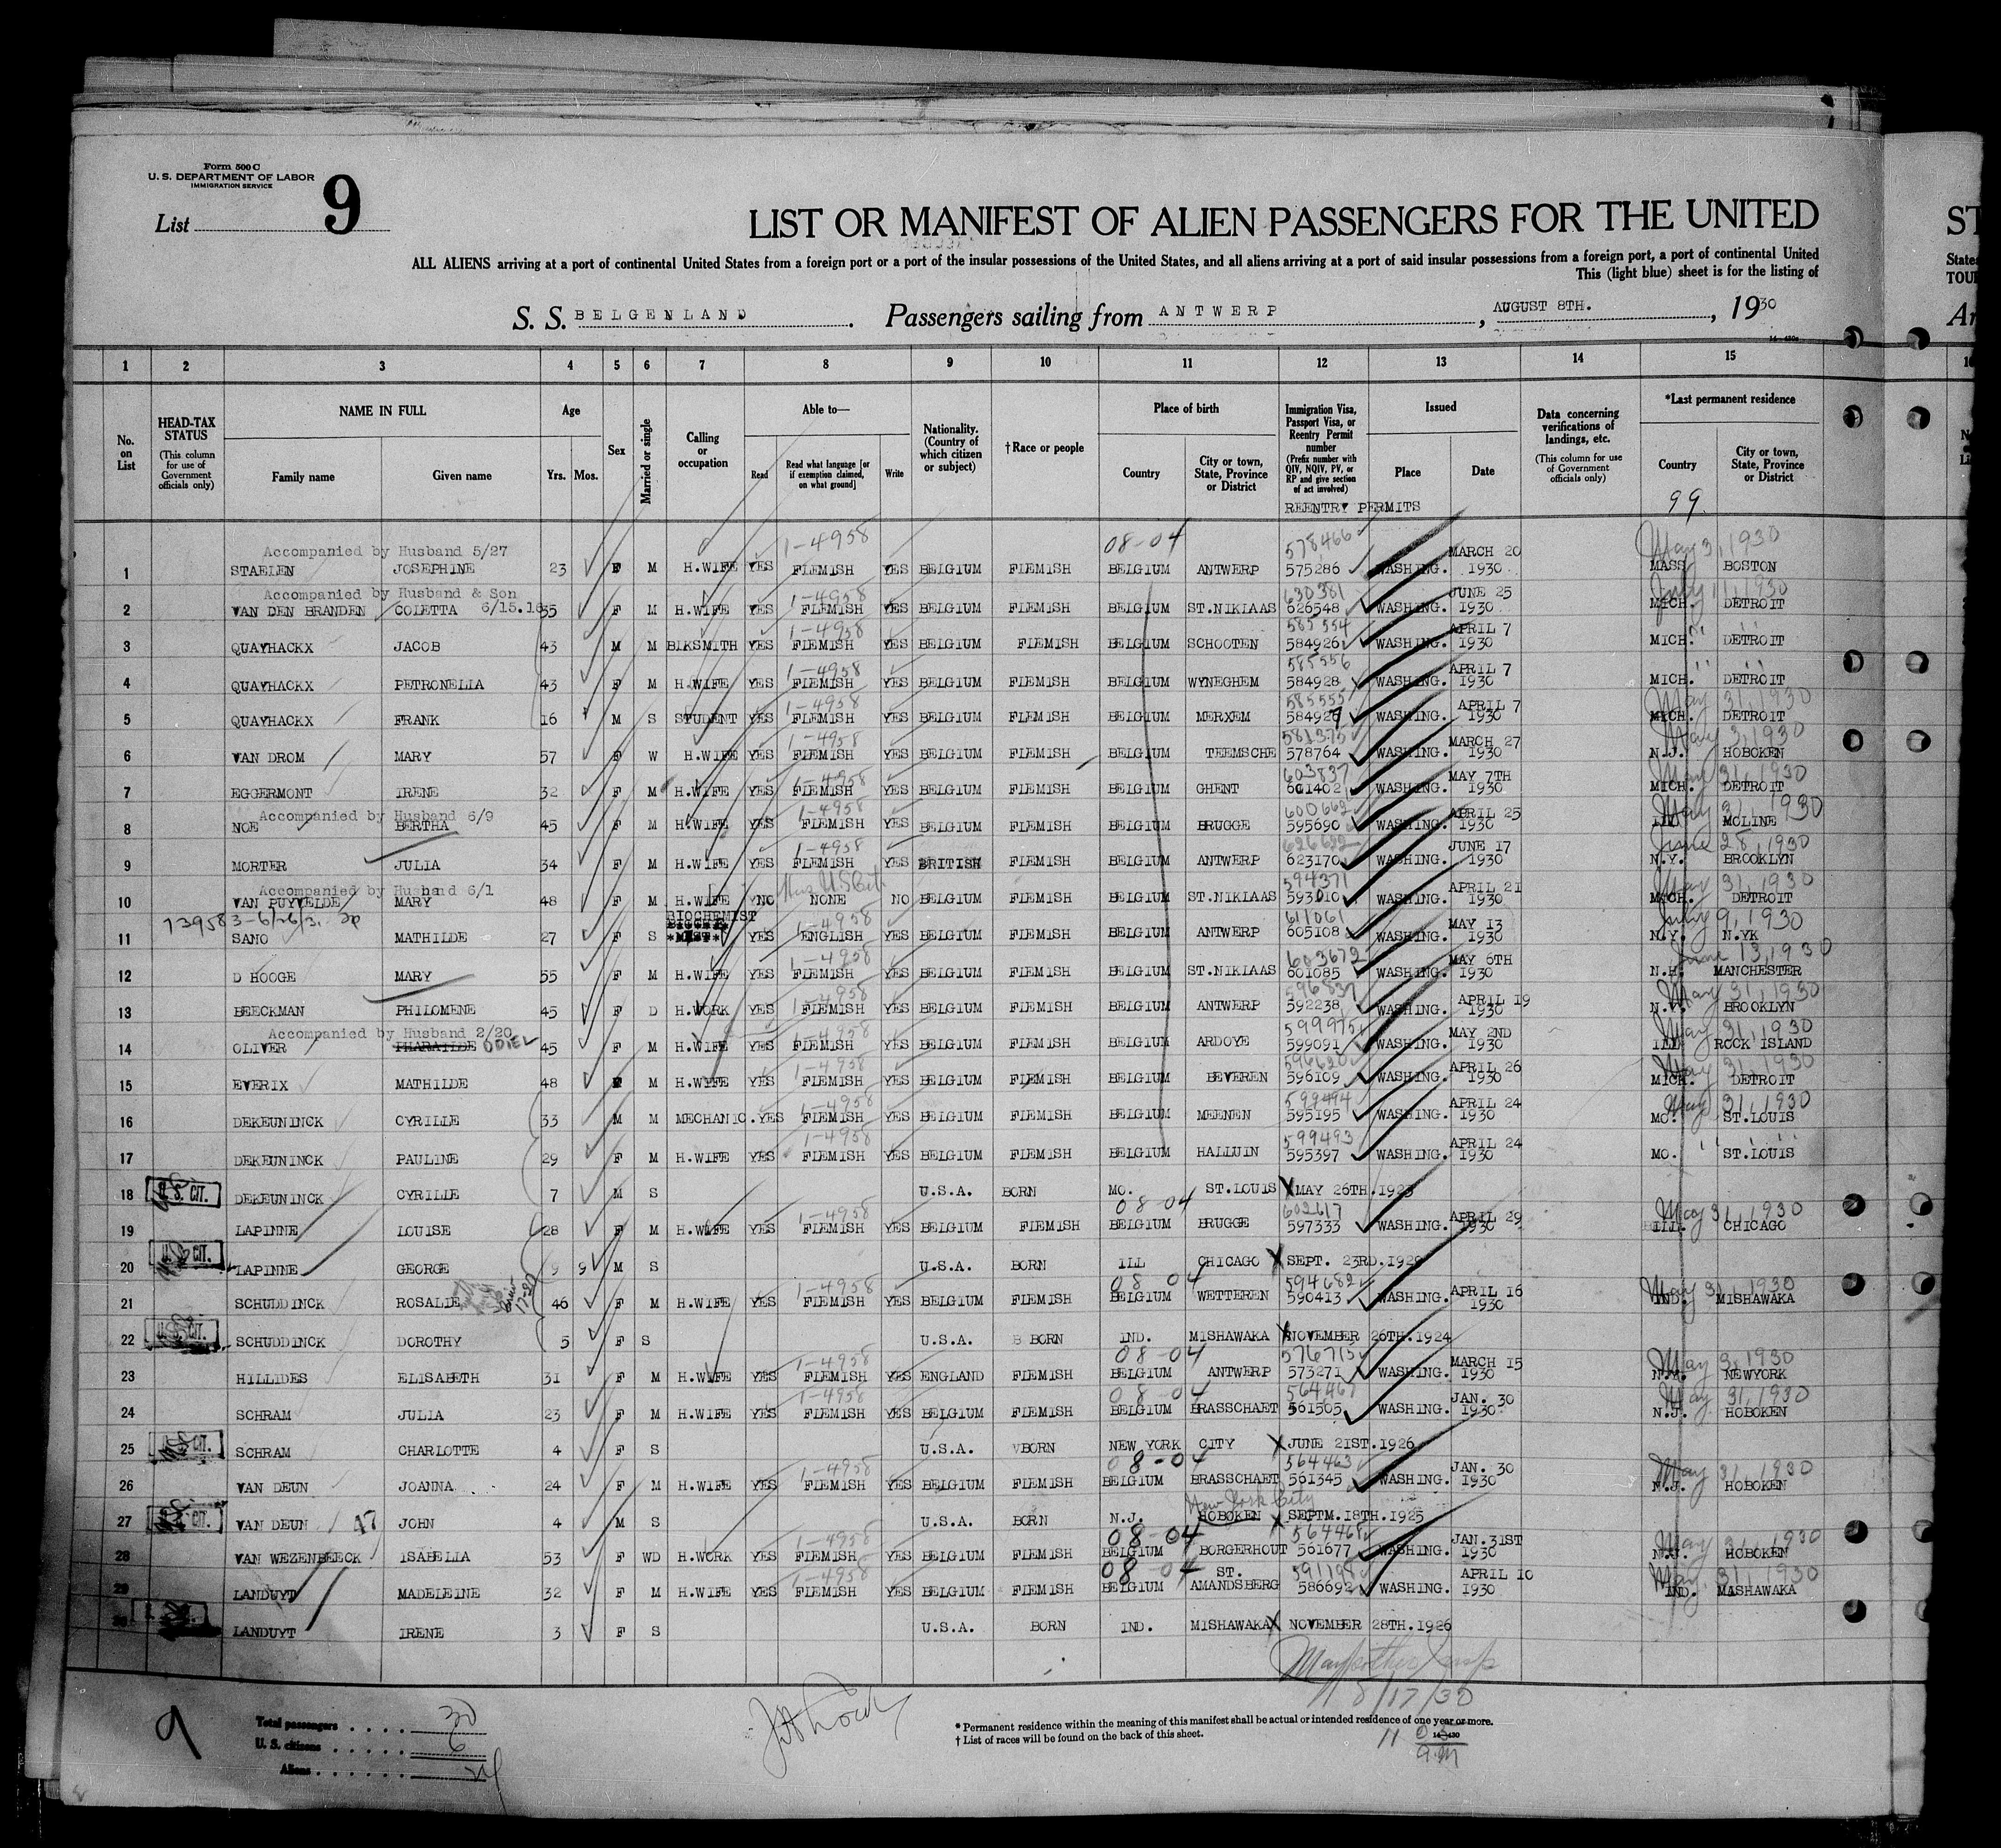 Form 500 C
U. S. DEPARTMENT OF LABOR
IMMIGRATION SERVICE
List 9
LIST OR MANIFEST OF ALIEN PASSENGERS FOR THE UNITED
ST
ALL ALIENS arriving at a port of continental United States from a foreign port or a port of the insular possessions of the United States, and all aliens arriving at a port of said insular possessions from a foreign port, a port of continental United
States
This (light blue) sheet is for the listing of
TOU
S. S. BELGENLAND. Passengers sailing from ANTWERP, AUGUST 8TH., 1930
Ar
1 2 3 4 5 6 7 8 9 10 11 12 13 14 15
No. on List
HEAD-TAX STATUS (This column for use of Government officials only)
NAME IN FULL Family name Given name
Age Yrs. Mos.
Sex
Married or single
Calling or occupation
Able to— Read Read what language [or if exemption claimed, on what ground] Write
Nationality. (Country of which citizen or subject)
†Race or people
Place of birth Country City or town, State, Province or District
Immigration Visa, Passport Visa, or Reentry Permit number (Prefix number with QIV, NQIV, PV, or RP and give section of act involved)
Issued Place Date
Data concerning verifications of landings, etc. (This column for use of Government officials only)
*Last permanent residence Country City or town, State, Province or District
99
REENTRY PERMITS
Accompanied by Husband 5/27 1-4958 08-04 578466 May 31, 1930
1 STAELEN JOSEPHINE 23 F M H.WIFE YES FLEMISH YES BELGIUM FLEMISH BELGIUM ANTWERP 575286 WASHING. MARCH 20 1930 MASS BOSTON
Accompanied by Husband & Son 6/15.18 1-4958 630381 July 11, 1930
2 VAN DEN BRANDEN COLETTA 35 F M H.WIFE YES FLEMISH YES BELGIUM FLEMISH BELGIUM ST.NIKLAAS 626548 WASHING. JUNE 25 1930 MICH. DETROIT
1-4958 585554
3 QUAYHACKX JACOB 43 M M BLKSMITH YES FLEMISH YES BELGIUM FLEMISH BELGIUM SCHOOTEN 584926 WASHING. APRIL 7 1930 MICH. DETROIT
1-4958 585556
4 QUAYHACKX PETRONELLA 43 F M H.WIFE YES FLEMISH YES BELGIUM FLEMISH BELGIUM WYNEGHEM 584928 WASHING. APRIL 7 1930 MICH. DETROIT
1-4958 585555 May 31, 1930
5 QUAYHACKX FRANK 16 M S STUDENT YES FLEMISH YES BELGIUM FLEMISH BELGIUM MERXEM 584927 WASHING. APRIL 7 1930 MICH. DETROIT
1-4958 581375 May 31, 1930
6 VAN DROM MARY 57 F W H.WIFE YES FLEMISH YES BELGIUM FLEMISH BELGIUM TEEMSCHE 578764 WASHING. MARCH 27 1930 N.J. HOBOKEN
1-4958 603837 May 31, 1930
7 EGGERMONT IRENE 32 F M H.WIFE YES FLEMISH YES BELGIUM FLEMISH BELGIUM GHENT 601402 WASHING. MAY 7TH 1930 MICH. DETROIT
Accompanied by Husband 6/9 1-4958 600662 May 31, 1930
8 NOE BERTHA 45 F M H.WIFE YES FLEMISH YES BELGIUM FLEMISH BELGIUM BRUGGE 595690 WASHING. APRIL 25 1930 ILL. MOLINE
1-4958 626622 June 28, 1930
9 MORTER JULIA 34 F M H.WIFE YES FLEMISH YES BRITISH FLEMISH BELGIUM ANTWERP 623170 WASHING. JUNE 17 1930 N.Y. BROOKLYN
Accompanied by Husband 6/1 594371 May 31, 1930
10 VAN PUYVELDE MARY 48 F M H.WIFE NO NONE NO BELGIUM FLEMISH BELGIUM ST.NIKLAAS 593010 WASHING. APRIL 21 1930 MICH. DETROIT
BIOCHEMIST 1-4958 611061 July 9, 1930
11 SANO MATHILDE 27 F S YES ENGLISH YES BELGIUM FLEMISH BELGIUM ANTWERP 605108 WASHING. MAY 13 1930 N.Y. N.YK
1-4958 603672 June 13, 1930
12 D HOOGE MARY 55 F M H.WIFE YES FLEMISH YES BELGIUM FLEMISH BELGIUM ST.NIKLAAS 601085 WASHING. MAY 6TH 1930 N.H. MANCHESTER
1-4958 596837 May 31, 1930
13 BEECKMAN PHILOMENE 45 F D H.WORK YES FLEMISH YES BELGIUM FLEMISH BELGIUM ANTWERP 592238 WASHING. APRIL 19 1930 N.Y. BROOKLYN
Accompanied by Husband 2/20 1-4958 599975 May 31, 1930
14 OLIVER PHARAILDE ODIEL 45 F M H.WIFE YES FLEMISH YES BELGIUM FLEMISH BELGIUM ARDOYE 599091 WASHING. MAY 2ND 1930 ILL ROCK ISLAND
1-4958 596620 May 31, 1930
15 EVERIX MATHILDE 48 F M H.WIFE YES FLEMISH YES BELGIUM FLEMISH BELGIUM BEVEREN 596109 WASHING. APRIL 26 1930 MICH. DETROIT
1-4958 599494 May 31, 1930
16 DEKEUNINCK CYRILLE 33 M M MECHANIC. YES FLEMISH YES BELGIUM FLEMISH BELGIUM MEENEN 595195 WASHING. APRIL 24 1930 MO. ST.LOUIS
1-4958 599493
17 DEKEUNINCK PAULINE 29 F M H.WIFE YES FLEMISH YES BELGIUM FLEMISH BELGIUM HALLUIN 595397 WASHING. APRIL 24 1930 MO. ST.LOUIS
18 U.S. CIT. DEKEUNINCK CYRILLE 7 M S U.S.A. BORN MO. ST.LOUIS X MAY 26TH.1923
1-4958 08-04 602617 May 31, 1930
19 LAPINNE LOUISE 28 F M H.WIFE YES FLEMISH YES BELGIUM FLEMISH BELGIUM BRUGGE 597333 WASHING. APRIL 29 1930 ILL. CHICAGO
20 U.S. CIT. LAPINNE GEORGE 9 9 M S U.S.A. BORN ILL CHICAGO X SEPT. 23RD.1920
1-4958 08 04 594682 May 31, 1930
21 SCHUDDINCK ROSALIE 46 F M H.WIFE YES FLEMISH YES BELGIUM FLEMISH BELGIUM WETTEREN 590413 WASHING. APRIL 16 1930 IND. MISHAWAKA
22 U.S. CIT. SCHUDDINCK DOROTHY 5 F S U.S.A. BORN IND. MISHAWAKA X NOVEMBER 26TH.1924
1-4958 08-04 576715 May 31, 1930
23 HILLIDES ELISABETH 31 F M H.WIFE YES FLEMISH YES ENGLAND FLEMISH BELGIUM ANTWERP 573271 WASHING. MARCH 15 1930 N.Y. NEWYORK
1-4958 08-04 564467 May 31, 1930
24 SCHRAM JULIA 23 F M H.WIFE YES FLEMISH YES BELGIUM FLEMISH BELGIUM BRASSCHAET 561505 WASHING. JAN. 30 1930 N.J. HOBOKEN
25 U.S. CIT. SCHRAM CHARLOTTE 4 F S U.S.A. BORN NEW YORK CITY X JUNE 21ST.1926
1-4958 08-04 564463 May 31, 1930
26 VAN DEUN JOANNA 24 F M H.WIFE YES FLEMISH YES BELGIUM FLEMISH BELGIUM BRASSCHAET 561345 WASHING. JAN. 30 1930 N.J. HOBOKEN
New York City
27 U.S. CIT. VAN DEUN 47 JOHN 4 M S U.S.A. BORN N.J. HOBOKEN X SEPTM.18TH.1925
1-4958 08-04 564468 May 31, 1930
28 VAN WEZENBEECK ISABELLA 53 F WD H.WORK YES FLEMISH YES BELGIUM FLEMISH BELGIUM BORGERHOUT 561677 WASHING. JAN.31ST 1930 N.J. HOBOKEN
1-4958 08-04 591198 May, 31, 1930
29 LANDUYT MADELEINE 32 F M H.WIFE YES FLEMISH YES BELGIUM FLEMISH BELGIUM ST. AMANDSBERG 586692 WASHING. APRIL 10 1930 IND. MASHAWAKA
30 LANDUYT IRENE 3 F S U.S.A. BORN IND. MISHAWAKA X NOVEMBER 28TH.1926
8/17/30
9
Total passengers . . . . 30
U. S. citizens . . . . . 6
Aliens . . . . . . 24
* Permanent residence within the meaning of this manifest shall be actual or intended residence of one year or more.
† List of races will be found on the back of this sheet.